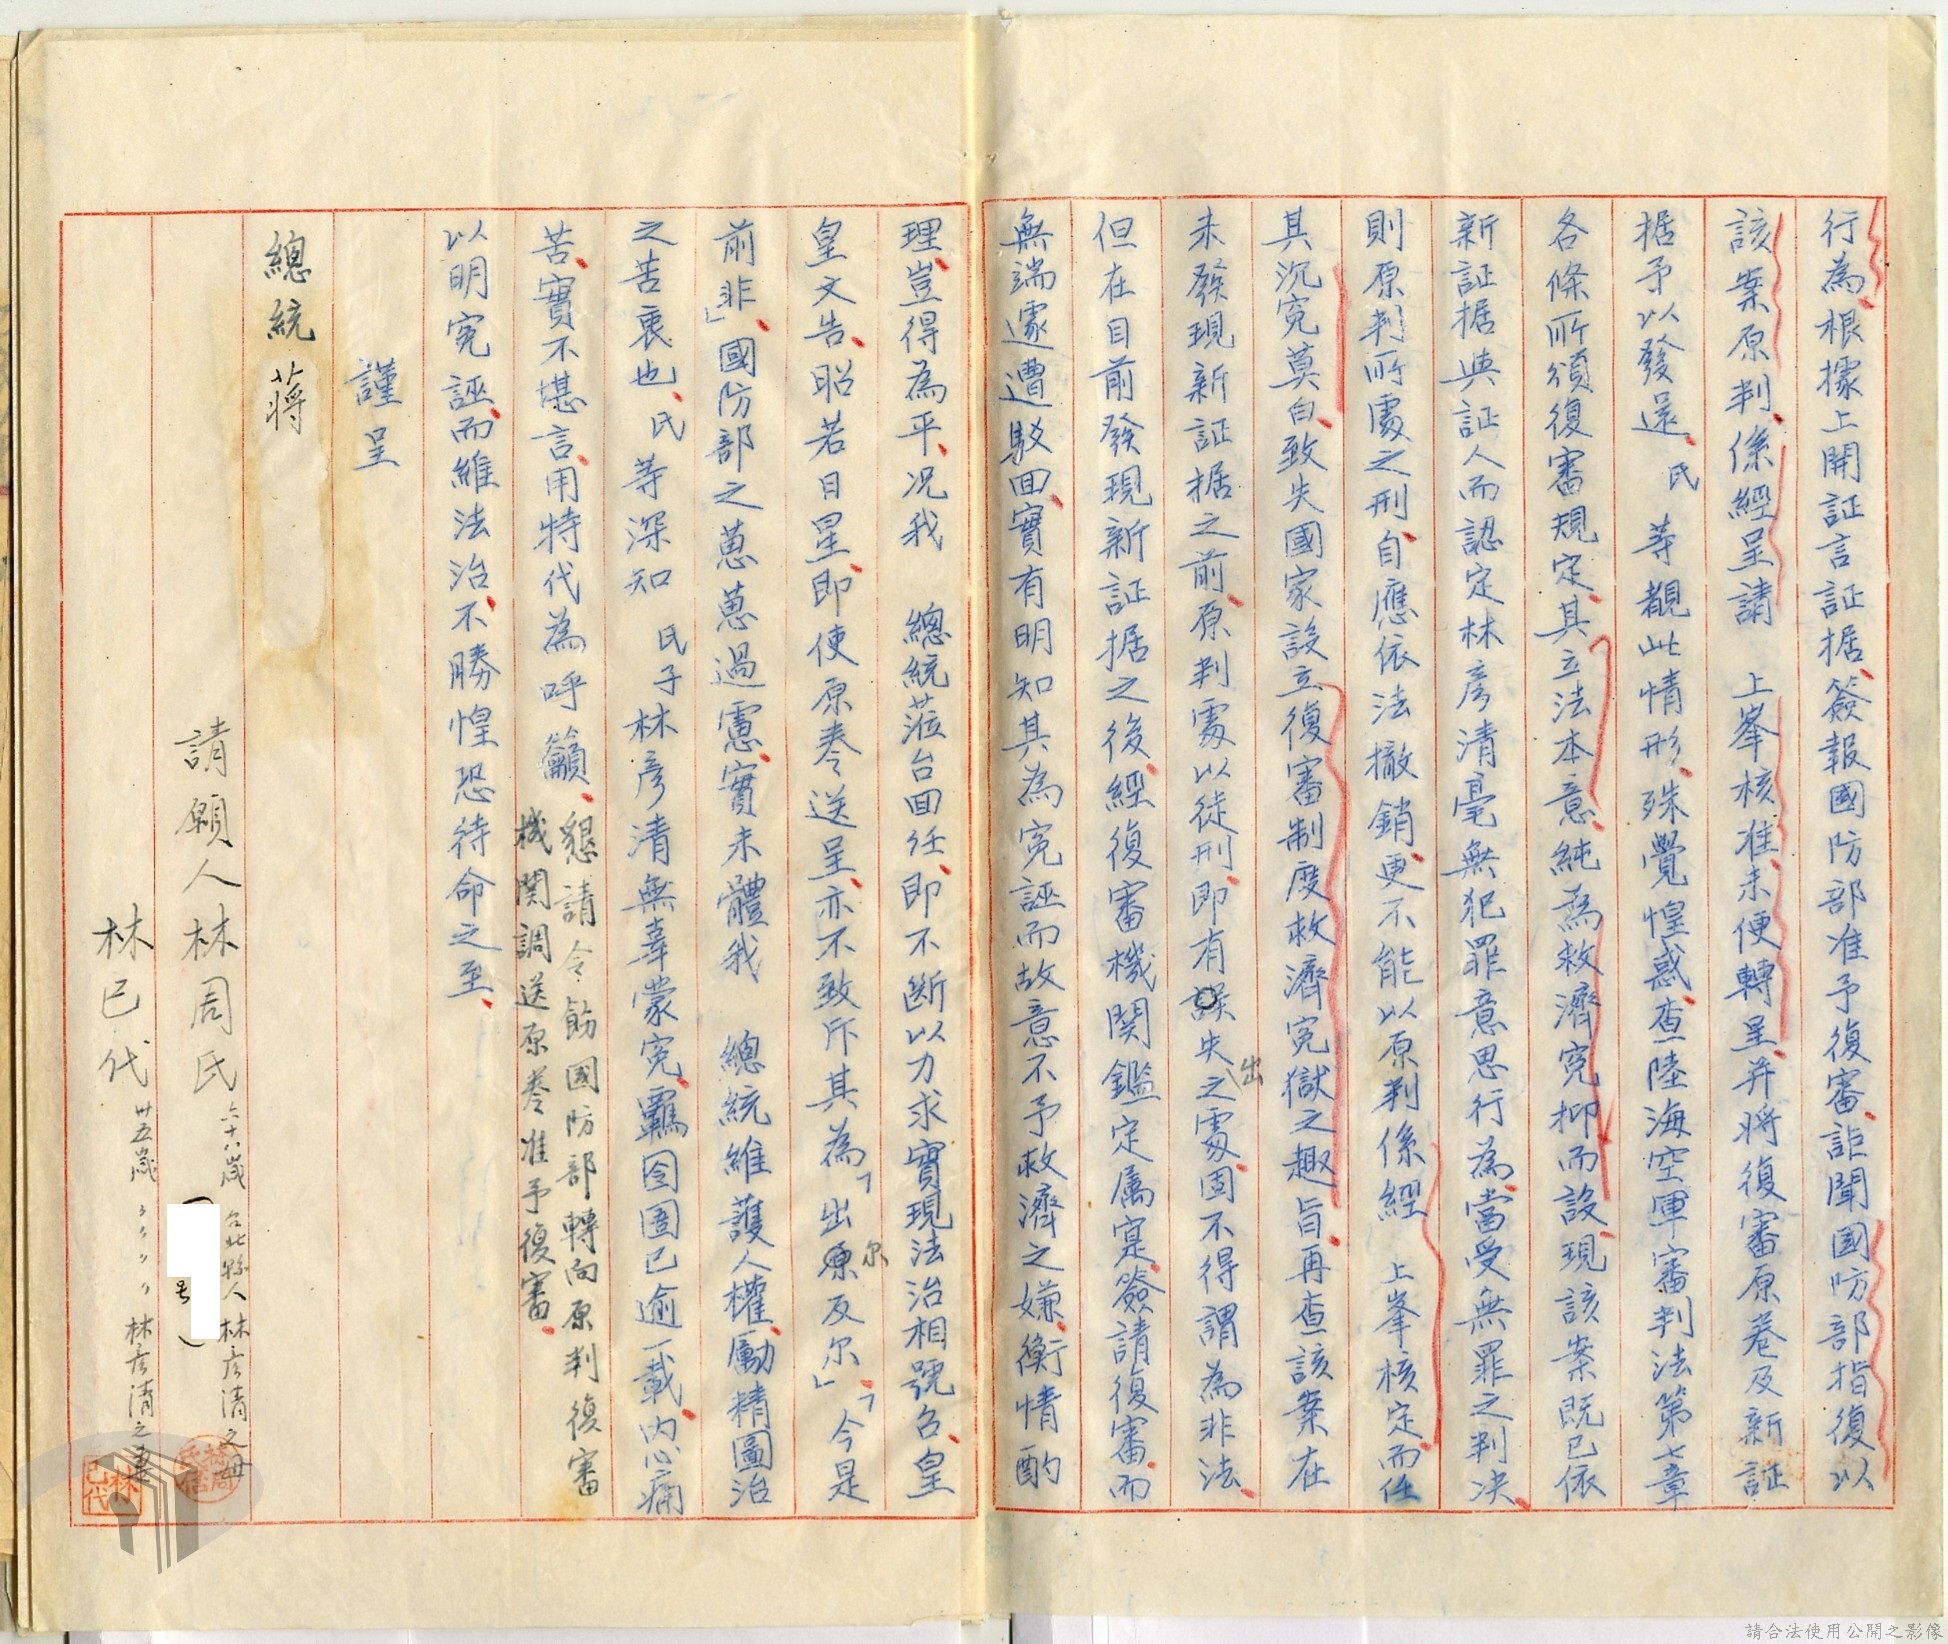 行為、根據上開証言証据、簽報國防部准予復審、詎聞國防部指復以
該案原判、係經呈請　上峯核准、未便轉呈、并將復審原卷及新証
据予以發還、氏　等覩此情形、殊覺惶惑、查陸海空軍審判法第七章
各條所頒復審規定、其立法本意、純為救濟寃抑而設、現該案既已依
新証据與証人而認定林彥清毫無犯罪意思行為、當受無罪之判决、
則原判所處之刑、自應依法撤銷、更不能以原判係經　上峯核定、而任
其沉寃莫白、致失國家設立復審制度救濟寃獄之趣旨、再查該案在
未發現新証据之前、原判處以徒刑、即有誤失之出處、固不得謂為非法、
但在目前發現新証据之後、經復審機関鑑定属寔、簽請復審、而
無端遽遭駁回、實有明知其為寃誣而故意不予救濟之嫌、衡情酌
理、豈得為平、况我　總統蒞台回任、即不断以力求實現法治相號召、皇
皇文告、昭若日星、即使原卷送呈、亦不致斥其為「出原尔反尔」、「今是
前非」、國防部之葸葸過慮、實未體我　總統維護人權、勵精圖治
之苦衷也、氏　等深知　氏子林彥清無辜蒙寃、羈囹圄已逾一載、内心痛
苦、實不堪言、用特代為呼籲、懇請令飭國防部轉向原判復審
機関調送原卷准予復審、
以明寃誣、而維法治、不勝惶恐待命之至、
謹呈
總統　蔣
請願人林周氏 六十八歲 台北縣人 林彥清之母
（号）
林已代 卅五歲 〃〃〃〃 林彥清之妻
林已代
請合法使用公開之影像